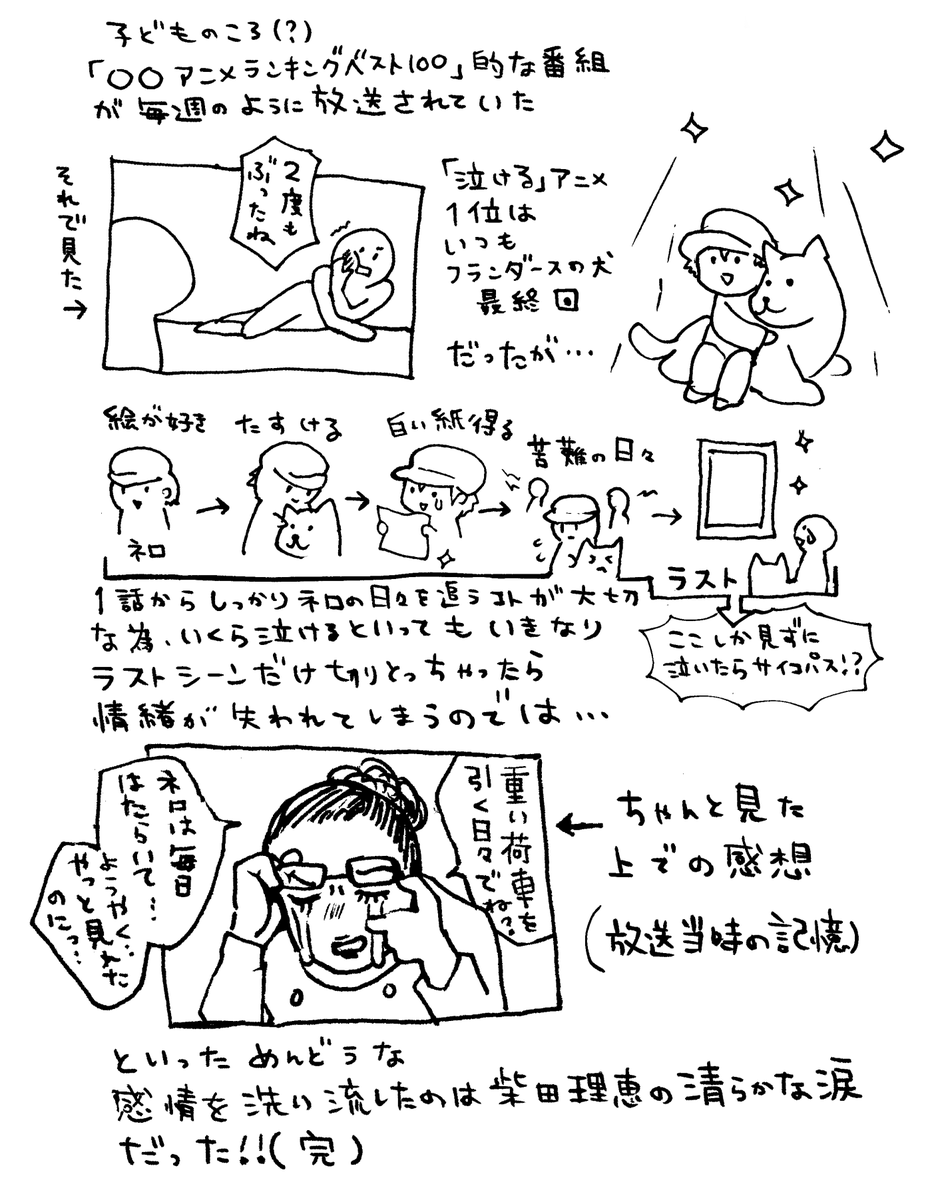 子どものころ(?)
「〇〇アニメランキングベスト100」的な番組
が毎週のように放送されていた
それで見た→
2度も
ぶったね
「泣ける」アニメ
1位は
いつも
フランダースの犬
最終回
だったが…
絵が好き
たすける
白い紙得る
苦難の日々
ネロ
ラスト
1話からしっかりネロの日々を追うコトが大切
な為、いくら泣けるといってもいきなり
ラストシーンだけ切りとっちゃったら
情緒が失われてしまうのでは…
ここしか見ずに
泣いたらサイコパス!?
重い荷車を
引く日々でね?
ネロは毎日
はたらいて…
ようやく…
やっと見れた
のにっ…
←ちゃんと見た
上での感想
(放送当時の記憶)
といっためんどうな
感情を洗い流したのは柴田理恵の清らかな涙
だった!!(完)